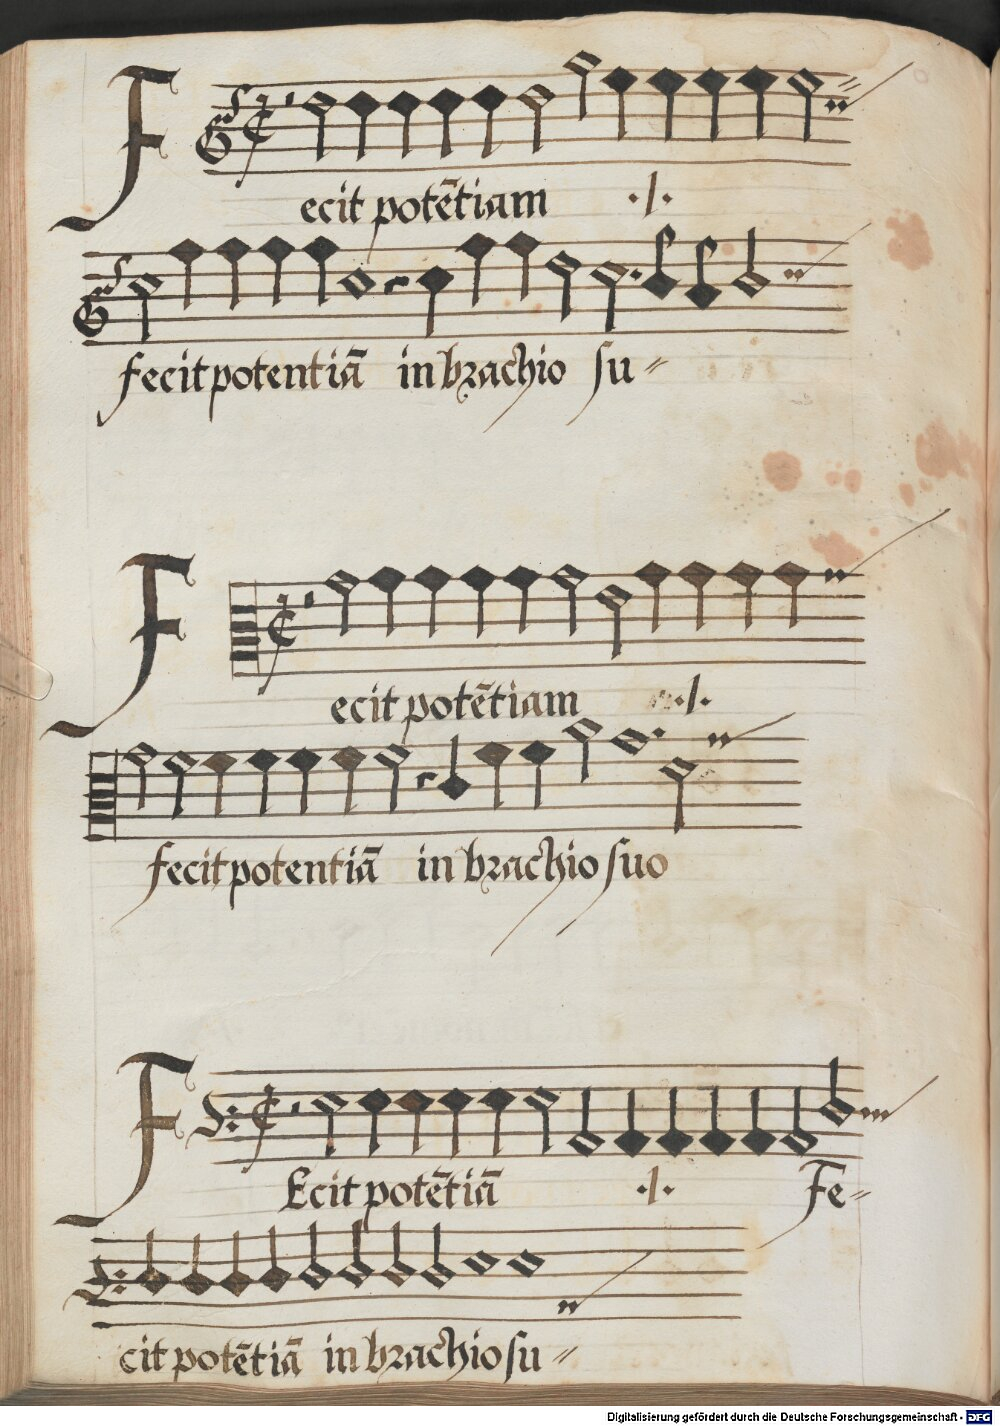 Fecit potẽtiam ·/·
fecit potentiã in brachio su=
Fecit potẽtiam ·/·
fecit potentiã in brachio suo
FEcit potẽtiã ·/· Fe=
cit potẽtiã in brachio su=
Digitalisierung gefördert durch die Deutsche Forschungsgemeinschaft - DFG